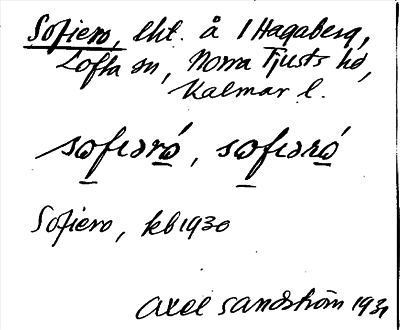 Sofiero, lht. å 1 Hagaberg,
Lofta sn, Norra Tjusts hd,
Kalmar l.
sofıəró, sofıəró
Sofiero, kb 1930
Axel Sandström 1931